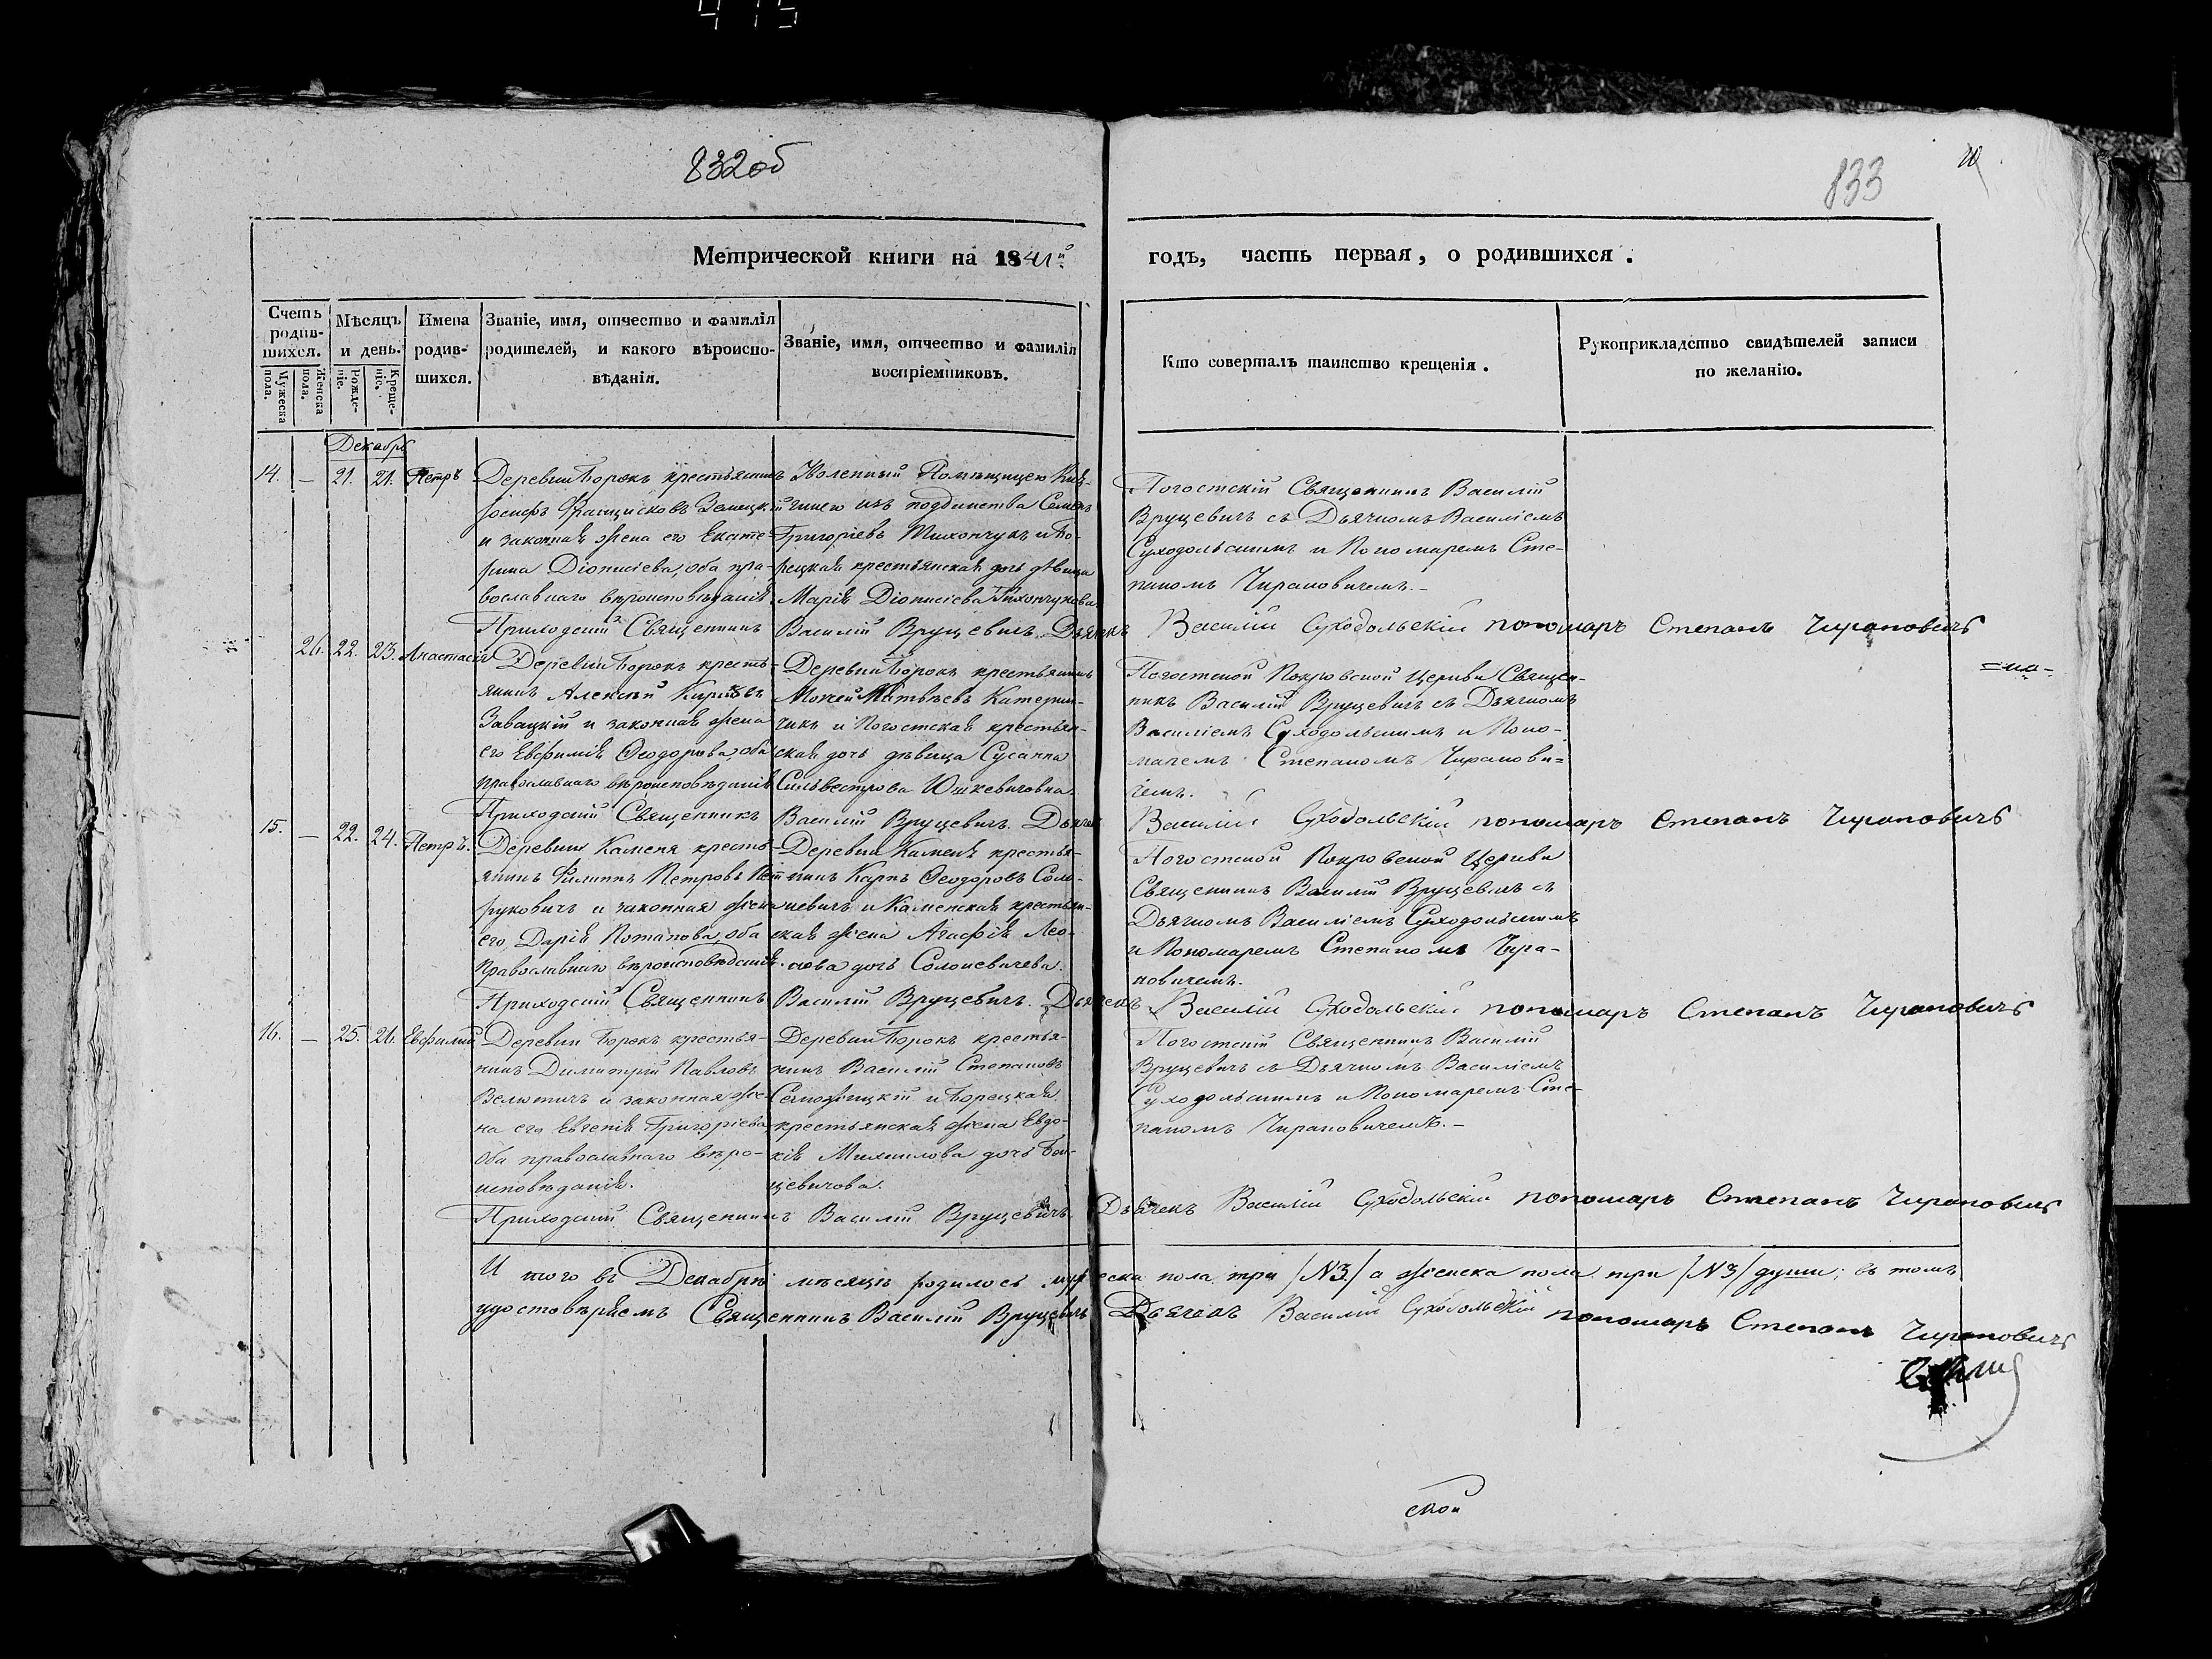 832об
833
Метрической книги на 1841й
годъ, часть первая, о родившихся.
Счетъ родив-
шихся.
Мужеска пола.
Женска пола.
Мѣсяцъ
и день.
Рожде-
ніе.
Креще-
ніе.
Имена
родив-
шихся.
Званіе, имя, отчество и фамилія
родителей, и какого вѣроиспо-
вѣданія.
Званіе, имя, отчество и фамилія
воспріемниковъ.
Кто совершалъ таинство крещенія.
Рукоприкладство свидѣтелей записи
по желанію.
Декабрь
14. — 21. 21. Петръ
Деревни Борокъ крестьянинъ
Іосифъ Францисковъ Земецкій
и законная жена его Екате-
рина Діонисіева, оба пра-
вославнаго вѣроисповѣданія
Уволенный Помѣщицею
изъ подданства Семенъ
Григоріевъ Тихончукъ и Бо-
рецкая крестьянская дочь дѣвица
Марія Діонисіева Тихончукова
Погостскій Священникъ Василій
Вруцевичъ съ Дьячкомъ Василіемъ
Суходольскимъ и Пономаремъ Сте-
паномъ Чирановичемъ.-
Приходскій Священникъ Василій Вруцевичъ Дьячекъ Василій Суходольскій пономаръ Степанъ Чирановичъ
26. 22. 23. Анастасія
Деревни Борокъ кресть-
янинъ Алексѣй
Завацкій и законная жена
его Евфимія Ѳеодорова, оба
православнаго вѣроисповѣданія
Деревни Борокъ крестьянинъ
Моисей Матвѣевъ Катерин-
чикъ и Погостская крестьян-
ская дочь дѣвица Сусанна
Сильвестрова Юшкевичовна
Погостской Покровской Церкви Священ-
никъ Василій Вруцевичъ съ Дьячкомъ
Василіемъ Суходольскимъ и Поно-
маремъ Степаномъ Чиранови=
чемъ.
Приходскій Священникъ Василій Вруцевичъ. Дьячекъ Василій Суходольскій пономаръ Степанъ Чирановичъ
15. — 22. 24. Петръ.
Деревни Каменя кресть-
янинъ Филиппъ Петровъ Пет-
руковичъ и законная жена
его Дарія Потапова, оба
Православнаго вѣроисповѣданія.
Деревни Каменя крестья-
нинъ Карпъ Ѳеодоровъ Соло-
невичъ и Каменская крестьян-
ская жена Агафія Лео-
нова дочь Солоневичева.
Погостской Покровской Церкви
Священникъ Василій Вруцевичъ съ
Дьячкомъ Василіемъ Суходольскимъ
и Пономаремъ Степаномъ Чира-
новичемъ.
Приходскій Священникъ Василій Вруцевичъ. Дьячекъ Василій Суходольскій пономаръ Степанъ Чирановичъ
16. — 25. 26. Евфимій
Деревни Борокъ крестья-
нинъ Димитрій Павловъ
Велютичъ и законная же-
на его Евгенія Григоріева
оба православнаго вѣро-
исповѣданія.
Деревни Борокъ крестья-
нинъ Василій Степановъ
и Борецкая
крестьянская жена Евдо-
кія Михаилова дочь
цевичова.
Погостскій Священникъ Василій
Вруцевичъ съ Дьячкомъ Василіемъ
Суходольскимъ и Пономаремъ Сте-
паномъ Чирановичемъ.-
Приходскій Священникъ Василій Вруцевичъ. Дьячекъ Василій Суходольскій пономаръ Степанъ Чирановичъ
Итого въ Декабрѣ мѣсяцѣ родилось мужеска пола три /№3/ а женска пола три /№3/ души; въ томъ
удостовѣряемъ Священникъ Василій Вруцевичъ Дьячекъ Василій Суходольскій пономаръ Степанъ Чирановичъ
ской